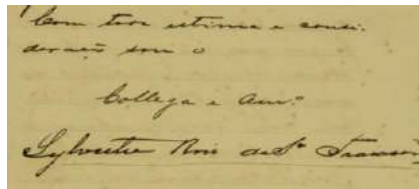 Com toda estima e consi-
deração sou o
Collega e Amº
Sylvestre Reis de Sº